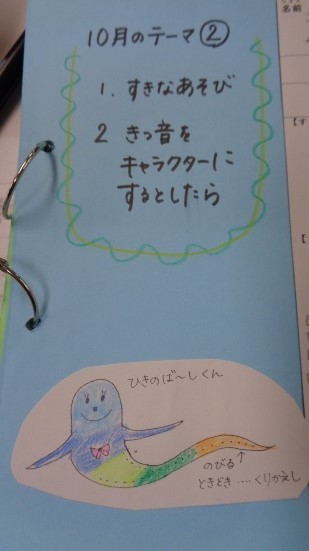 10月のテーマ②
1. すきなあそび
2 きつ音を
キャラクターに
するとしたら
ひきのば〜しくん
のびる
ときどき…くりかえし
名前
【す
【